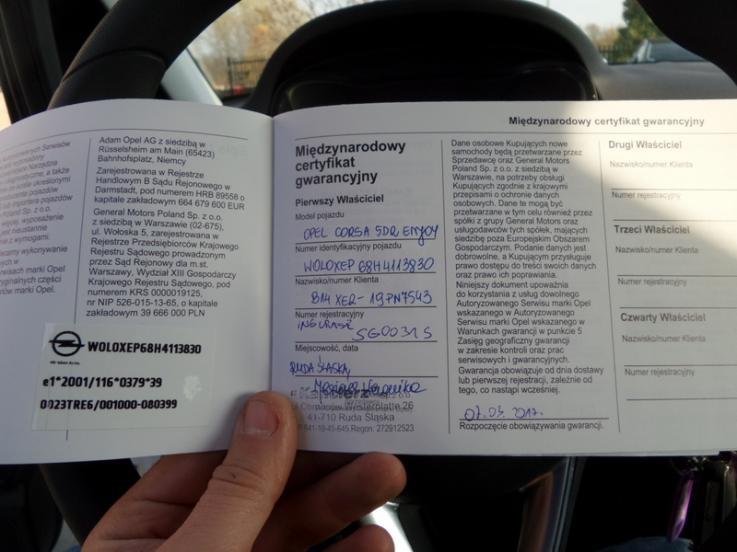 Adam Opel AG z siedzibą w
Rüsselsheim am Main (65423)
Bahnhofsplatz, Niemcy
Zarejestrowana w Rejestrze
Handlowym B Sądu Rejonowego w
Darmstadt, pod numerem HRB 89558 o
kapitale zakładowym 664 679 600 EUR
General Motors Poland Sp. z o.o.
z siedzibą w Warszawie (02-675),
ul. Wołoska 5, zarejestrowana w
Rejestrze Przedsiębiorców Krajowego
Rejestru Sądowego prowadzonym
przez Sąd Rejonowy dla m.st.
Warszawy, Wydział XIII Gospodarczy
Krajowego Rejestru Sądowego, pod
numerem KRS 0000019125,
nr NIP 526-015-13-65, o kapitale
zakładowym 39 666 000 PLN
W0L0XEP68H4113830
e1*2001/116*0379*39
0023TRE6/001000-080399
Międzynarodowy certyfikat gwarancyjny
Międzynarodowy
certyfikat
gwarancyjny
Pierwszy Właściciel
Model pojazdu
OPEL CORSA 5DR, ENJOY
Numer identyfikacyjny pojazdu
WOLOXEP68H4113830
Nazwisko/numer Klienta
B14XER-19PN7543
Numer rejestracyjny
SG0031S
Miejscowość, data
RUDA ŚLĄSKA,
41-710 Ruda Śląska
Dane osobowe Kupujących nowe
samochody będą przetwarzane przez
Sprzedawcę oraz General Motors
Poland Sp. z o.o. z siedzibą w
Warszawie, na potrzeby obsługi
Kupujących zgodnie z krajowymi
przepisami o ochronie danych
osobowych. Dane te mogą być
przetwarzane w tym celu również przez
spółki z grupy General Motors oraz
usługodawców tych spółek, mających
siedzibę poza Europejskim Obszarem
Gospodarczym. Podanie danych jest
dobrowolne, a Kupującym przysługuje
prawo dostępu do treści swoich danych
oraz prawo ich poprawiania.
Niniejszy dokument upoważnia
do korzystania z usług dowolnego
Autoryzowanego Serwisu marki Opel
wskazanego w Autoryzowanego
Serwisu marki Opel wskazanego w
Warunkach gwarancji w punkcie 5
Zasięg geograficzny gwarancji
w zakresie kontroli oraz prac
serwisowych i gwarancyjnych.
Gwarancja obowiązuje od dnia dostawy
lub pierwszej rejestracji, zależnie od
tego, co nastąpi wcześniej.
07.03.2017.
Rozpoczęcie obowiązywania gwarancji.
Drugi Właściciel
Nazwisko/numer Klienta
Numer rejestracyjny
Trzeci Właściciel
Nazwisko/numer Klienta
Numer rejestracyjny
Czwarty Właściciel
Nazwisko/numer Klienta
Numer rejestracyjny